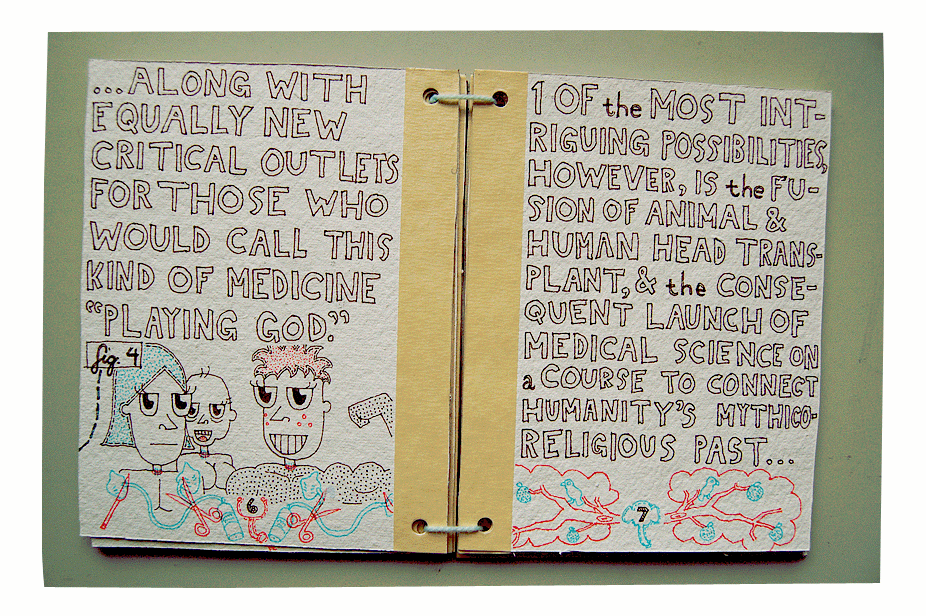 ...ALONG WITH
EQUALLY NEW
CRITICAL OUTLETS
FOR THOSE WHO
WOULD CALL THIS
KIND OF MEDICINE
"PLAYING GOD."
fig. 4
6
1 OF the MOST INT-
RIGUING POSSIBILITIES,
HOWEVER, IS the FU-
SION OF ANIMAL &
HUMAN HEAD TRANS-
PLANT, & the CONSE-
QUENT LAUNCH OF
MEDICAL SCIENCE ON
a COURSE TO CONNECT
HUMANITY'S MYTHICO-
RELIGIOUS PAST...
7